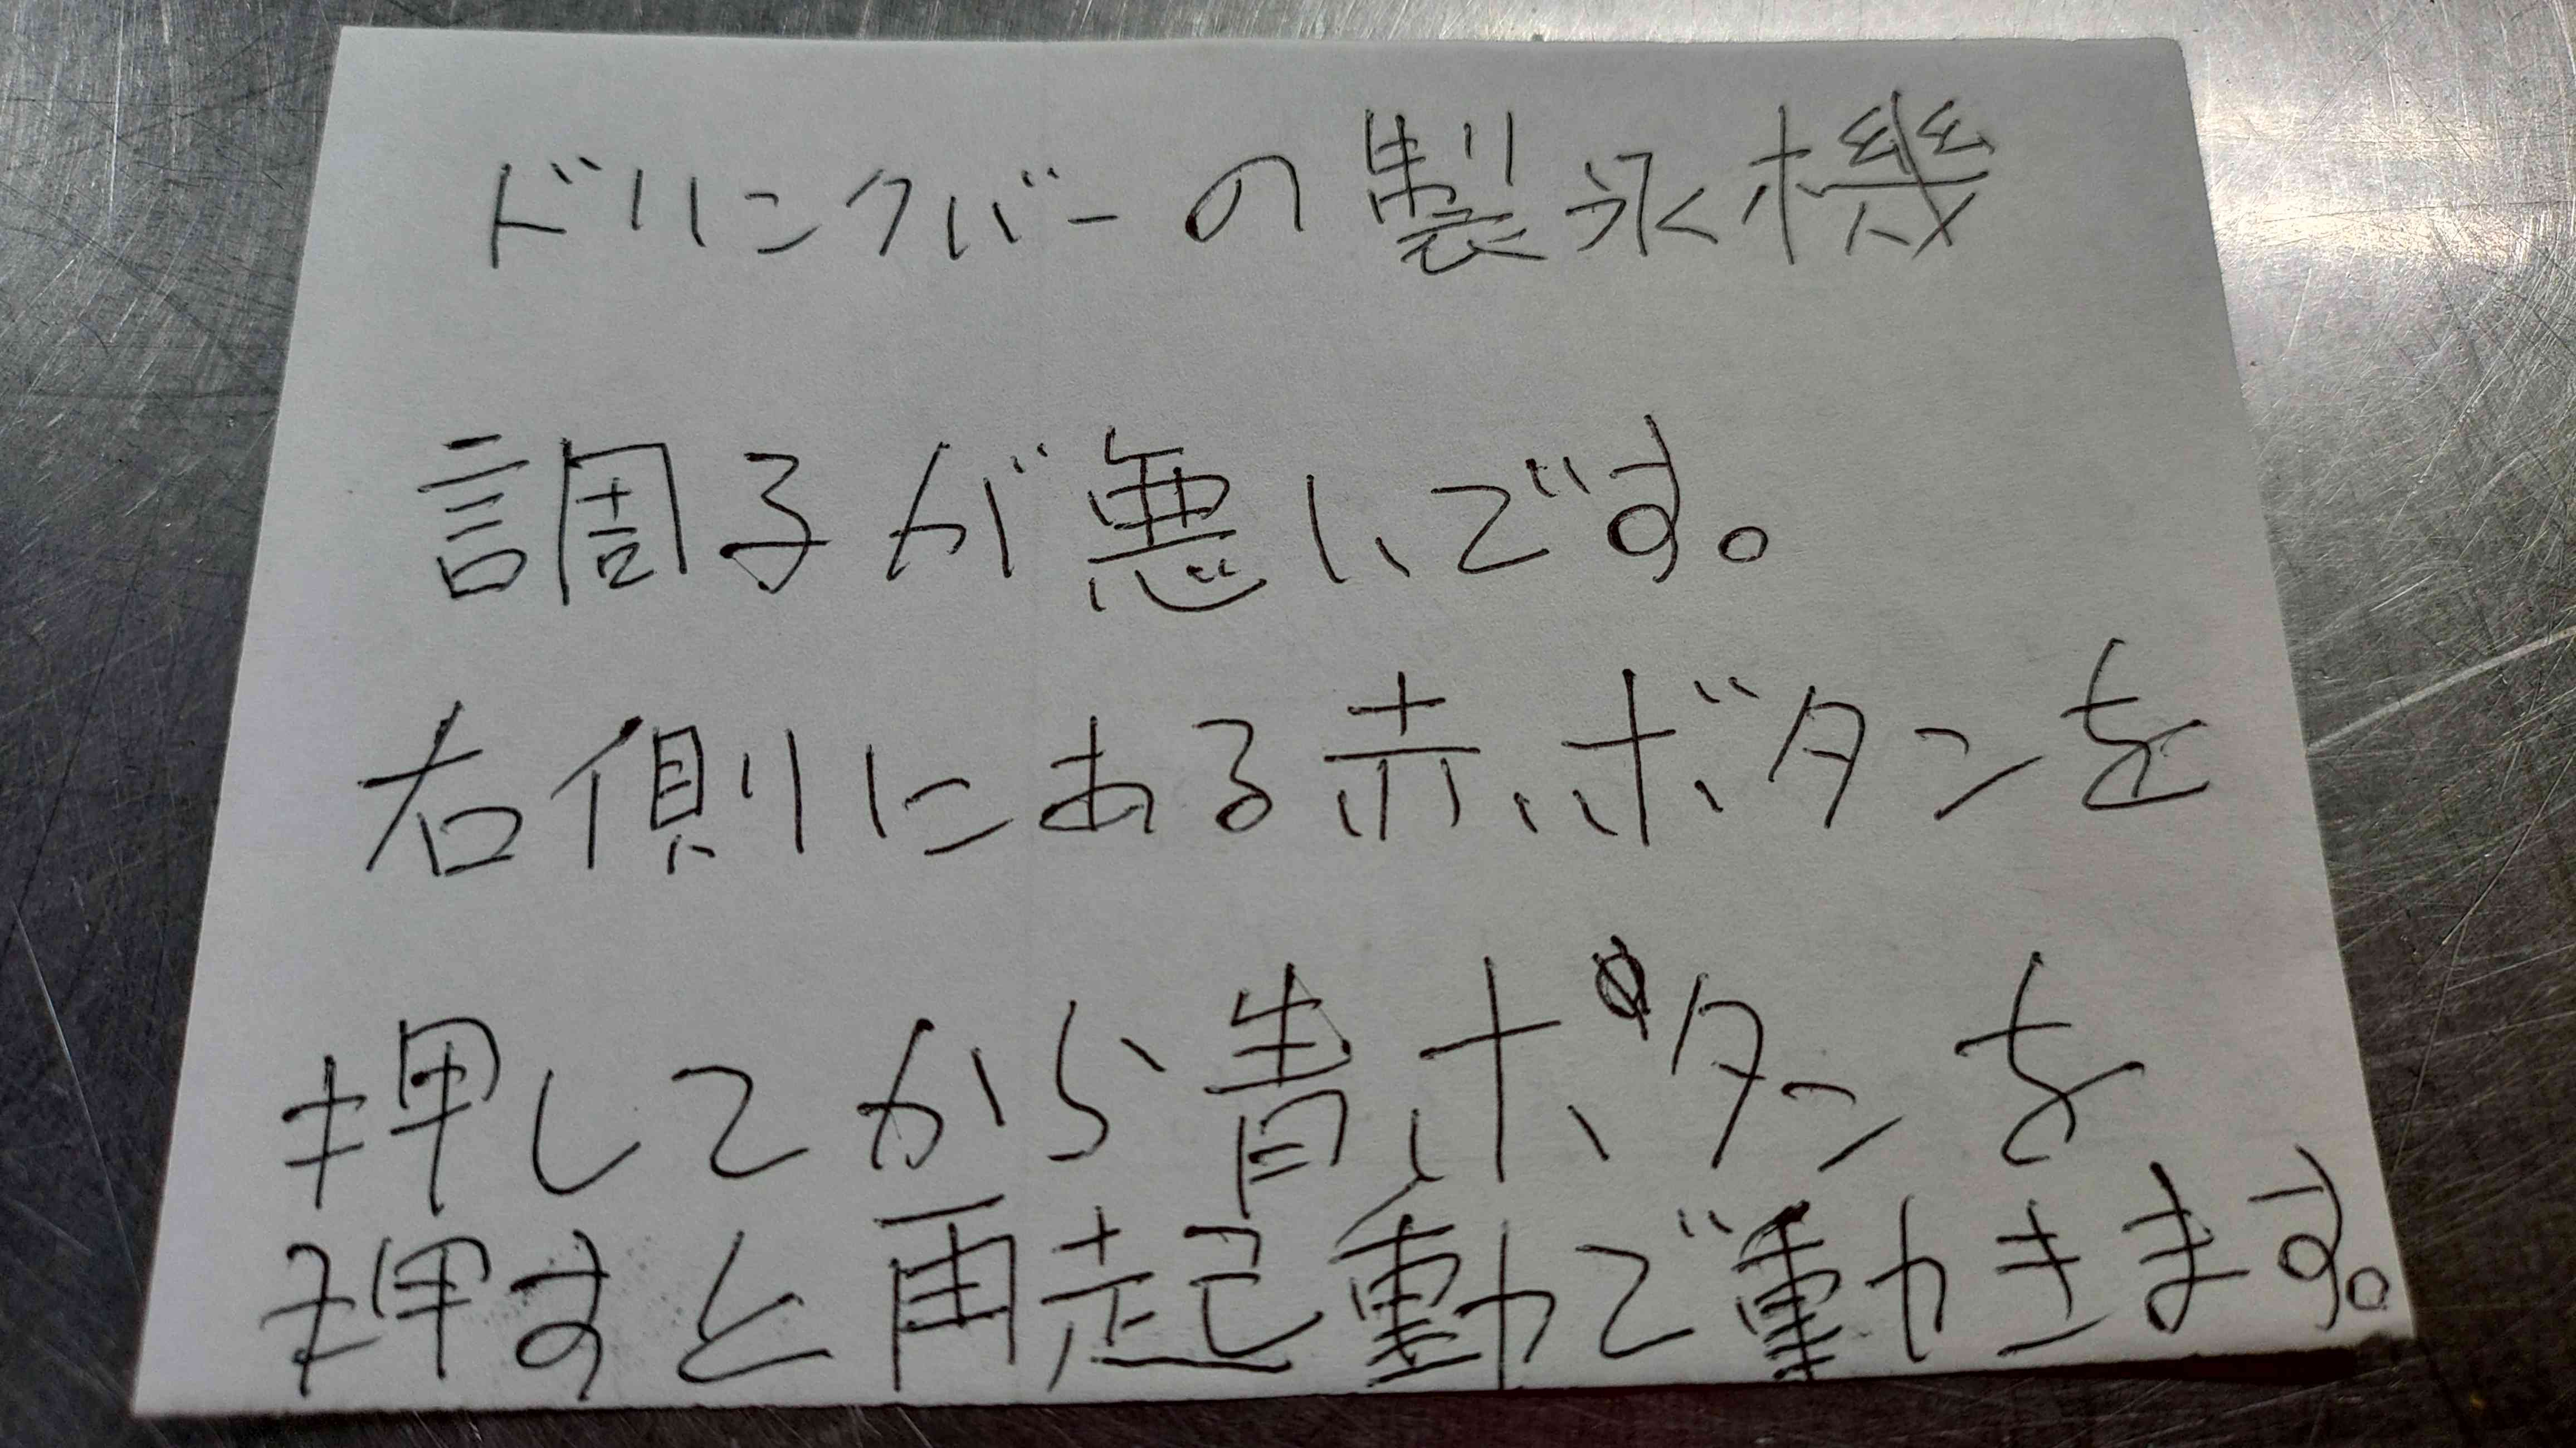 ドリンクバーの製氷機
調子が悪いです。
右側にある赤ボタンを
押してから青ボタンを
押すと再起動で動きます。